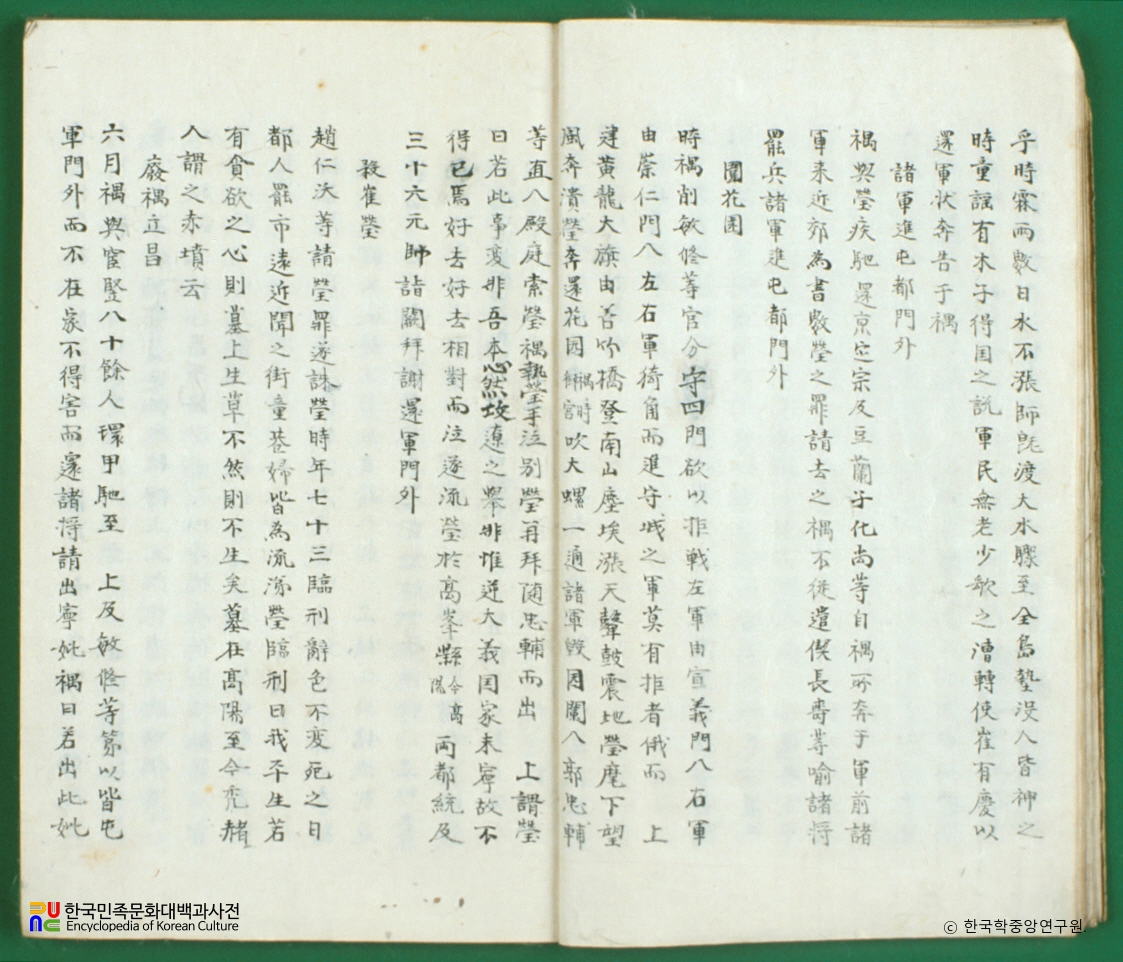 乎時霖雨數日水不漲師既渡大水驟至全島墊沒人皆神之
時童謠有木子得国之說軍民無老少歌之漕轉使崔有慶以
還軍状奔告于禑
諸軍進屯都門外
禑與瑩疾馳還京定宗及豆蘭子化尚等自禑所奔于軍前諸
軍来近郊為書數瑩之罪請去之禑不従遣偰長壽等喻諸将
罷兵諸軍進屯都門外
圍花園
時禑削敏修等官分守四門欲以拒戦左軍由宣義門入右軍
由崇仁門入左右軍掎角而進守城之軍莫有拒者俄而 上
建黄龍大旗由善竹橋登南山塵埃漲天聲鼓震地瑩麾下望
風奔潰瑩奔還花园禑時御宮吹大螺一通諸軍毁园闌入郭忠輔
等直入殿庭索瑩禑執瑩手泣别瑩再拜随忠輔而出 上謂瑩
曰若此事変非吾本心然攻遼之舉非惟逆大義国家未寧故不
得已焉好去好去相對而泣遂流瑩於高峯縣今高陽両都統及
三十六元帥詣闕拜謝還軍門外
殺崔瑩
趙仁沃等請瑩罪遂誅瑩時年七十三臨刑辭色不変死之日
都人罷市遠近聞之街童巷婦皆為流涕瑩臨刑曰我平生若
有貪欲之心則墓上生草不然則不生矣墓在高陽至今禿赭
人謂之赤墳云
廢禑立昌
六月禑與宦竪八十餘人環甲馳至 上及敏修等第以皆屯
軍門外而不在家不得害而還諸将請出寧妣禑曰若出此妣